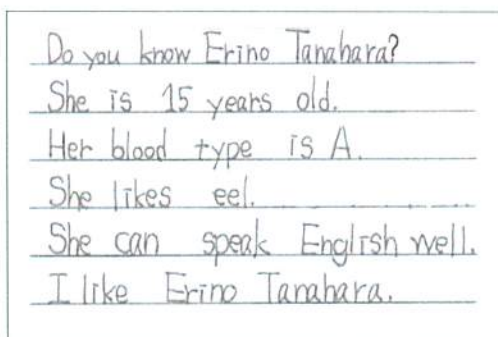 Do you know Erino Tanahara?
She is 15 years old.
Her blood type is A.
She likes eel.
She can speak English well.
I like Erino Tanahara.